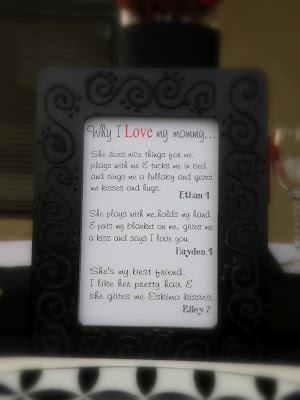 Why I Love my mommy...
She does nice things for me,
plays with me & tucks me in bed
and sings me a lullaby and gives
me kisses and hugs.
Ethan 4
She plays with me, holds my hand
& puts my blanket on me, gives me
a kiss and says I love you.
Hayden 4
She's my best friend.
I like her pretty hair &
she gives me Eskimo kisses.
Riley 2